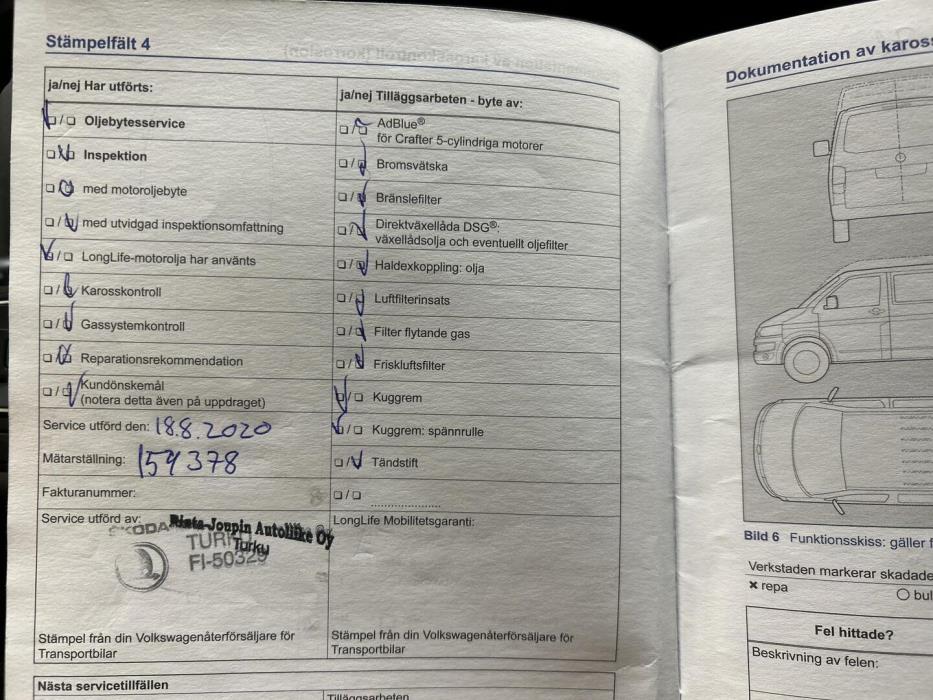 Stämpelfält 4
ja/nej Har utförts:
Oljebytesservice
Inspektion
med motoroljebyte
med utvidgad inspektionsomfattning
LongLife-motorolja har använts
Karosskontroll
Gassystemkontroll
Reparationsrekommendation
Kundönskemål
(notera detta även på uppdraget)
Service utförd den: 18.8.2020
Mätarställning: 159378
Fakturanummer:
Service utförd av:
ŠKODA
Rinta-Joupin Autoliike Oy
Turku
TURKU
FI-50329
Stämpel från din Volkswagenåterförsäljare för
Transportbilar
ja/nej Tilläggsarbeten - byte av:
AdBlue®
för Crafter 5-cylindriga motorer
Bromsvätska
Bränslefilter
Direktväxellåda DSG®:
växellådsolja och eventuellt oljefilter
Haldexkoppling: olja
Luftfilterinsats
Filter flytande gas
Friskluftsfilter
Kuggrem
Kuggrem: spännrulle
Tändstift
LongLife Mobilitetsgaranti:
Stämpel från din Volkswagenåterförsäljare för
Transportbilar
Nästa servicetillfällen
Tilläggsarbeten
Dokumentation av kaross
Bild 6 Funktionsskiss: gäller f
Verkstaden markerar skadade
× repa
bul
Fel hittade?
Beskrivning av felen: